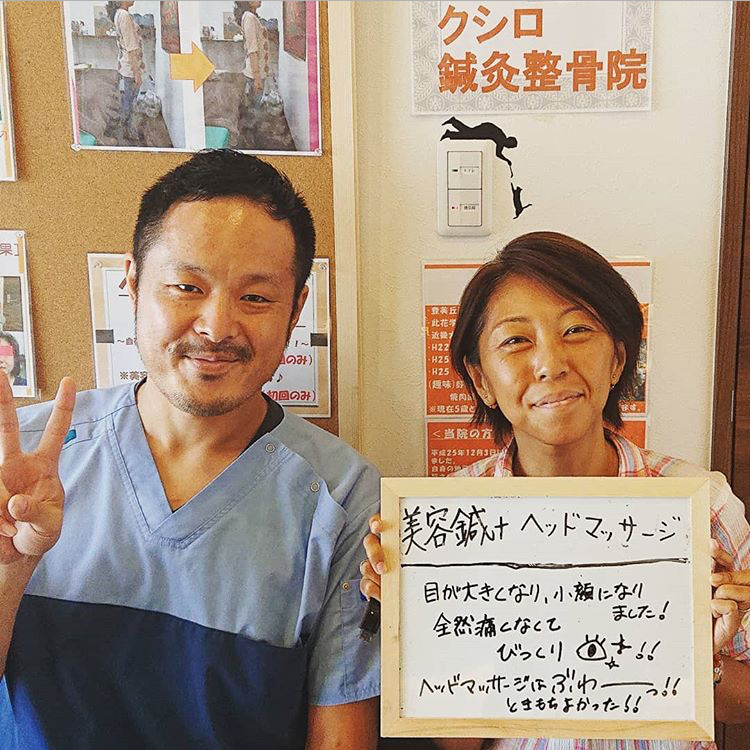 クシロ
鍼灸整骨院
・登美丘
此花学
近畿大
・H22
・H25
・H25
(趣味)好
焼肉
※現在5歳と
<当院の方
平成25年12月3日
ました。
自身の地
～自
※美容
回のみ)
初回のみ)
美容鍼+ヘッドマッサージ
目が大きくなり、小顔になり
ました!
全然痛くなくて
びっくり !!
ヘッドマッサージはぶわーーっ!!
ときもちよかった!!